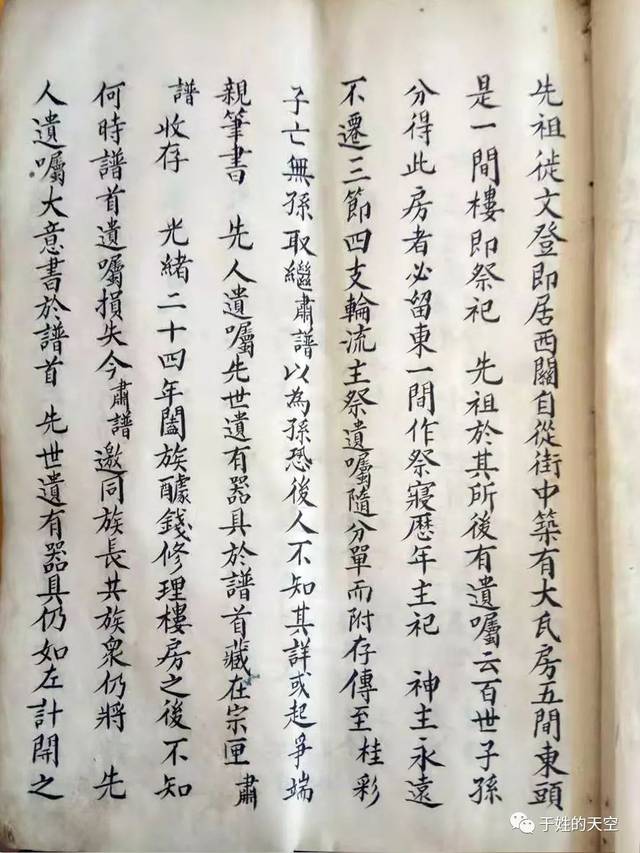 先祖從文登即居西關自從街中築有大瓦房五間東頭
是一間樓即祭祀　先祖於其所後有遺囑云百世子孫
分得此房者必留東一間作祭寢歷年主祀　神主永遠
不遷三節四支輪流主祭遺囑隨分單而附存傳至桂彩
子亡無孫取繼肅譜以為孫恐後人不知其詳或起爭端
親筆書　先人遺囑先世遺有器具於譜首藏在宗匣　肅
譜收存　光緒二十四年闔族醵錢修理樓房之後不知
何時譜首遺囑損失今肅譜邀同族長共族衆仍將　先
人遺囑大意書於譜首　先世遺有器具仍如左計開之
于姓的天空